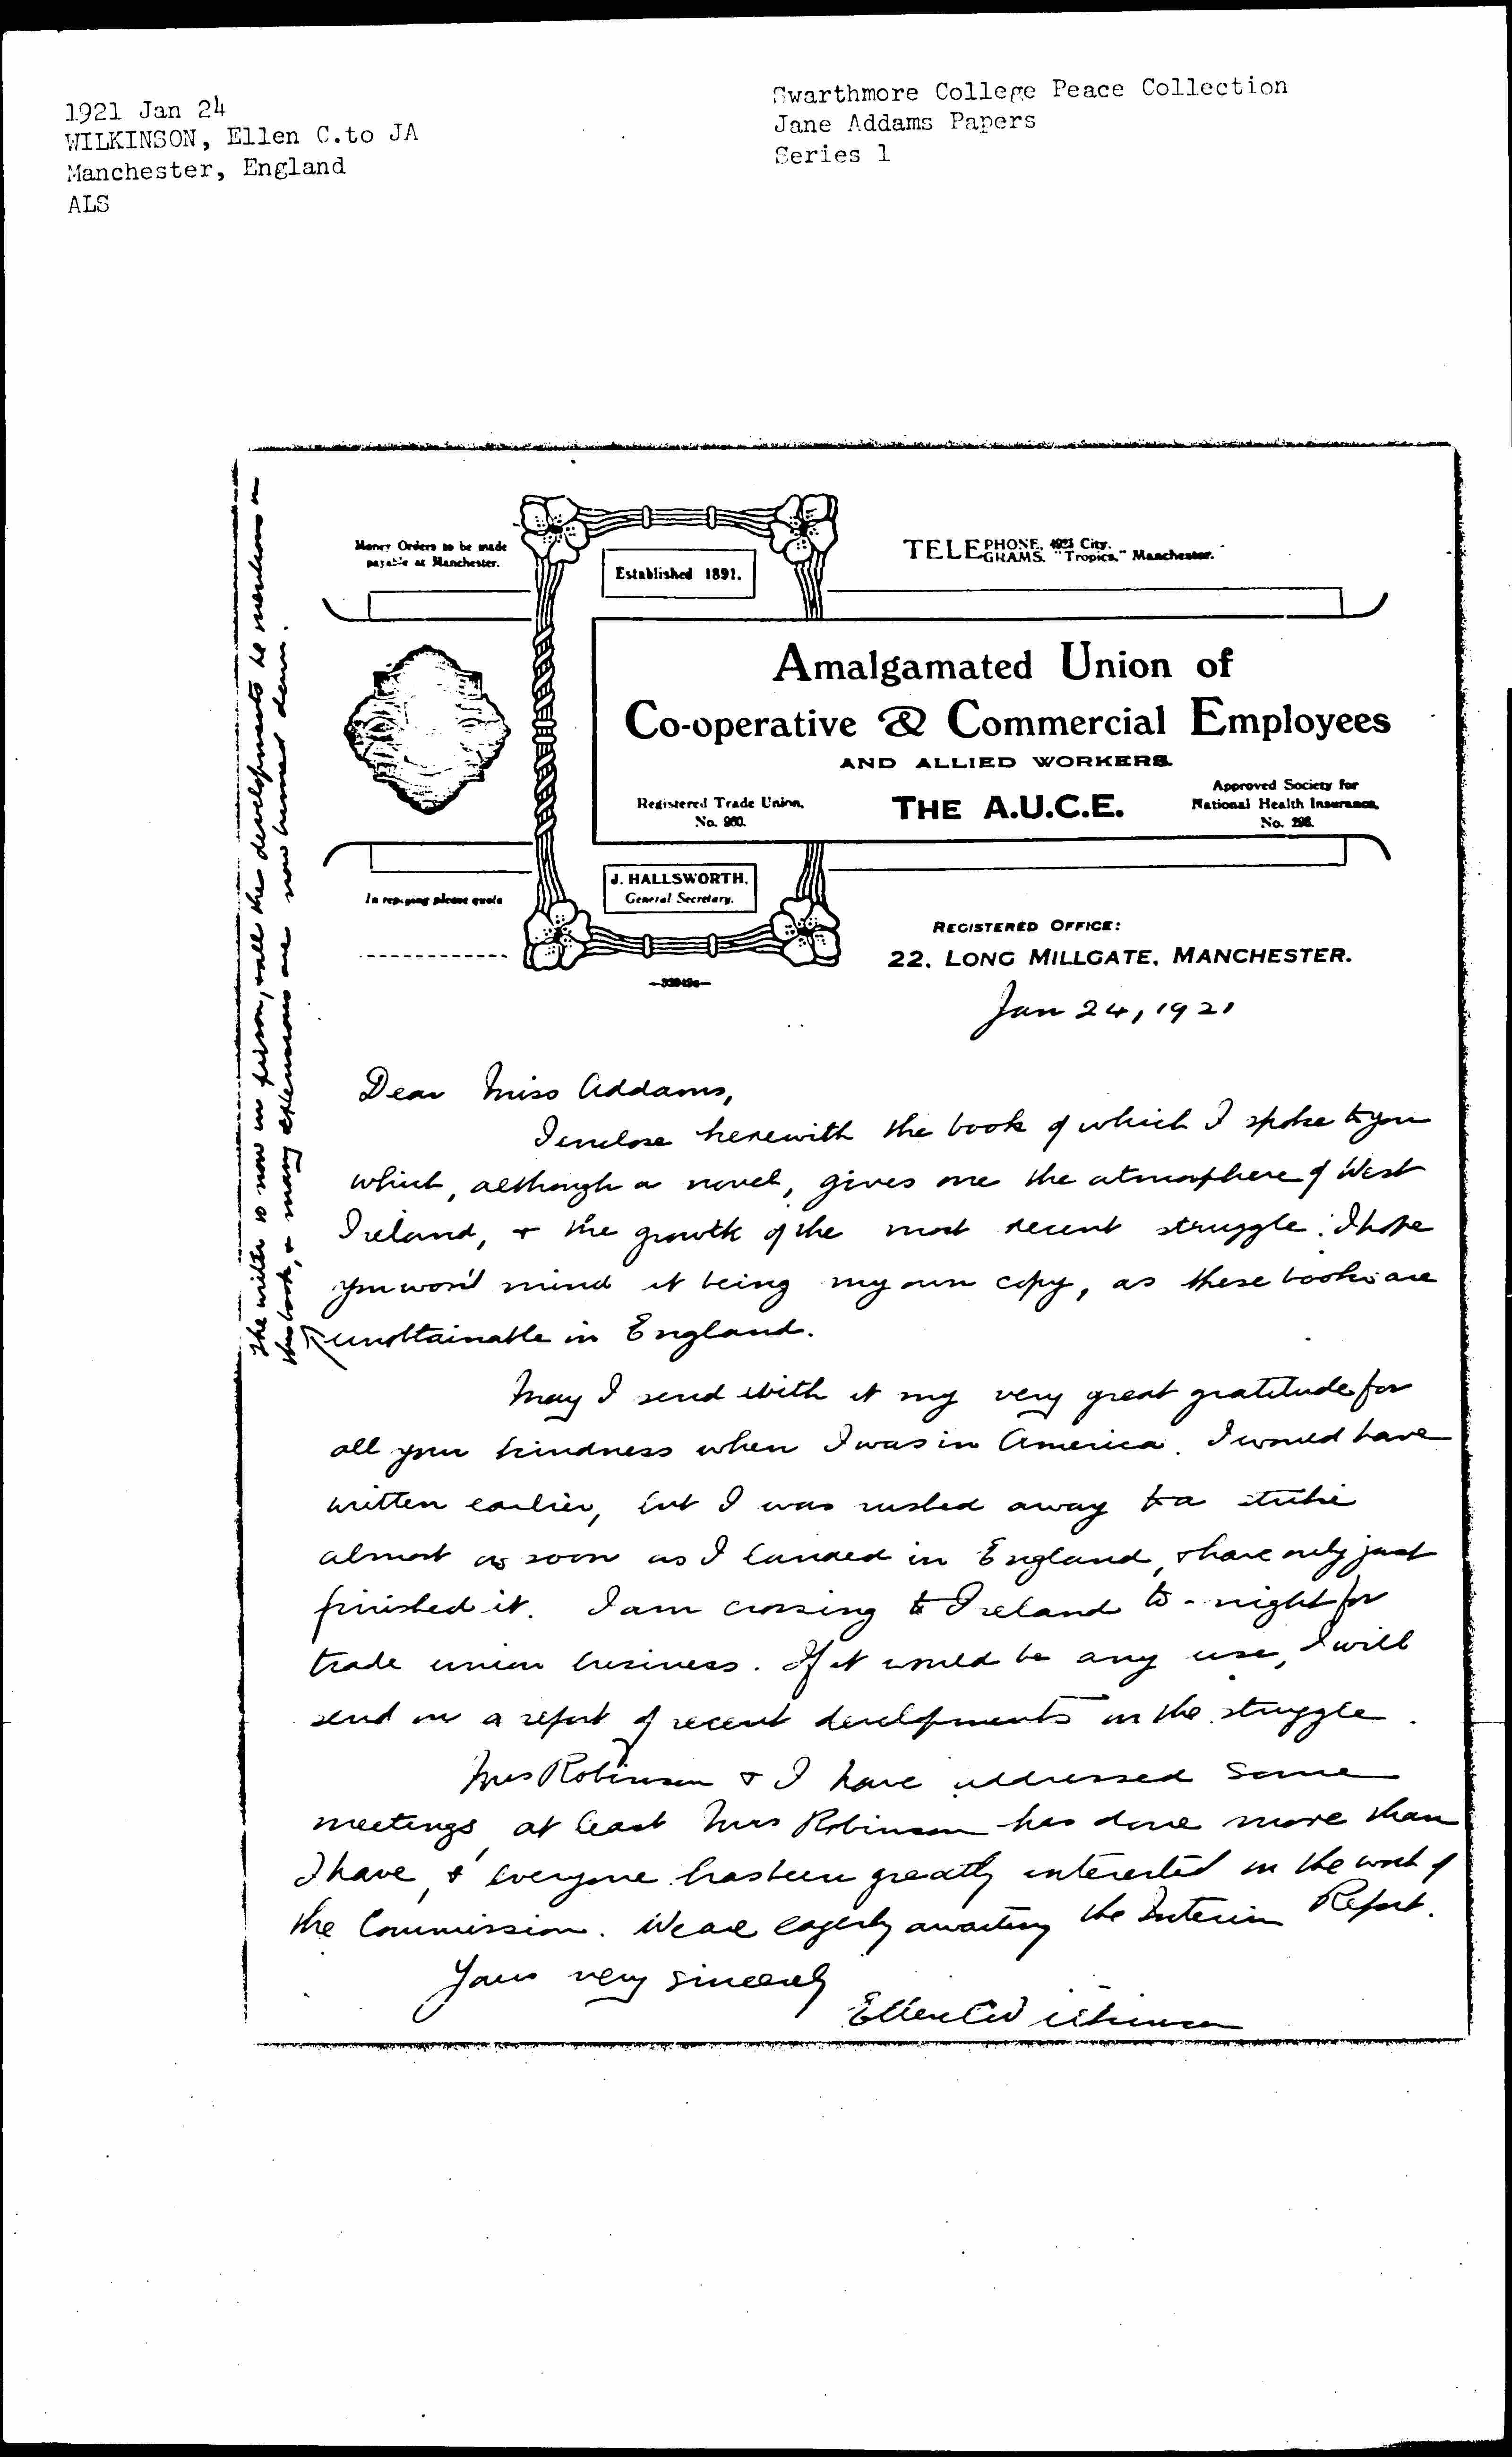 1921 Jan 24
WILKINSON, Ellen C.to JA
Manchester, England
ALS
Swarthmore College Peace Collection
Jane Addams Papers
Series 1
Money Orders to be made
payable at Manchester.
Established 1891.
TELEPHONE, 4923 City.
TELEGRAMS. "Tropics," Manchester.
Amalgamated Union of
Co-operative & Commercial Employees
AND ALLIED WORKERS.
Registered Trade Union,
No. 960.
THE A.U.C.E.
Approved Society for
National Health Insurance,
No. 298.
J. HALLSWORTH,
General Secretary.
In replying please quote
REGISTERED OFFICE:
22, LONG MILLGATE, MANCHESTER.
Jan 24, 1921
Dear Miss Addams,
I enclose herewith the book of which I spoke to you
which, although a novel, gives one the atmosphere of West
Ireland, & the growth of the most recent struggle. I hope
you won't mind it being my own copy, as these books are
unobtainable in England.
May I send with it my very great gratitude for
all your kindness when I was in America. I would have
written earlier, but I was rushed away to a strike
almost as soon as I landed in England, & have only just
finished it. I am crossing to Ireland to-night for
trade union business. If it would be any use, I will
send on a report of recent developments in the struggle.
Mrs Robinson & I have addressed some
meetings, at least Mrs Robinson has done more than
I have, & everyone has been greatly interested in the work of
the Commission. We are eagerly awaiting the Interim Report.
Yours very sincerely
Ellen C Wilkinson
The writer is now in prison, & all the developments he mentions in
this book, & many extensions are now burned down.